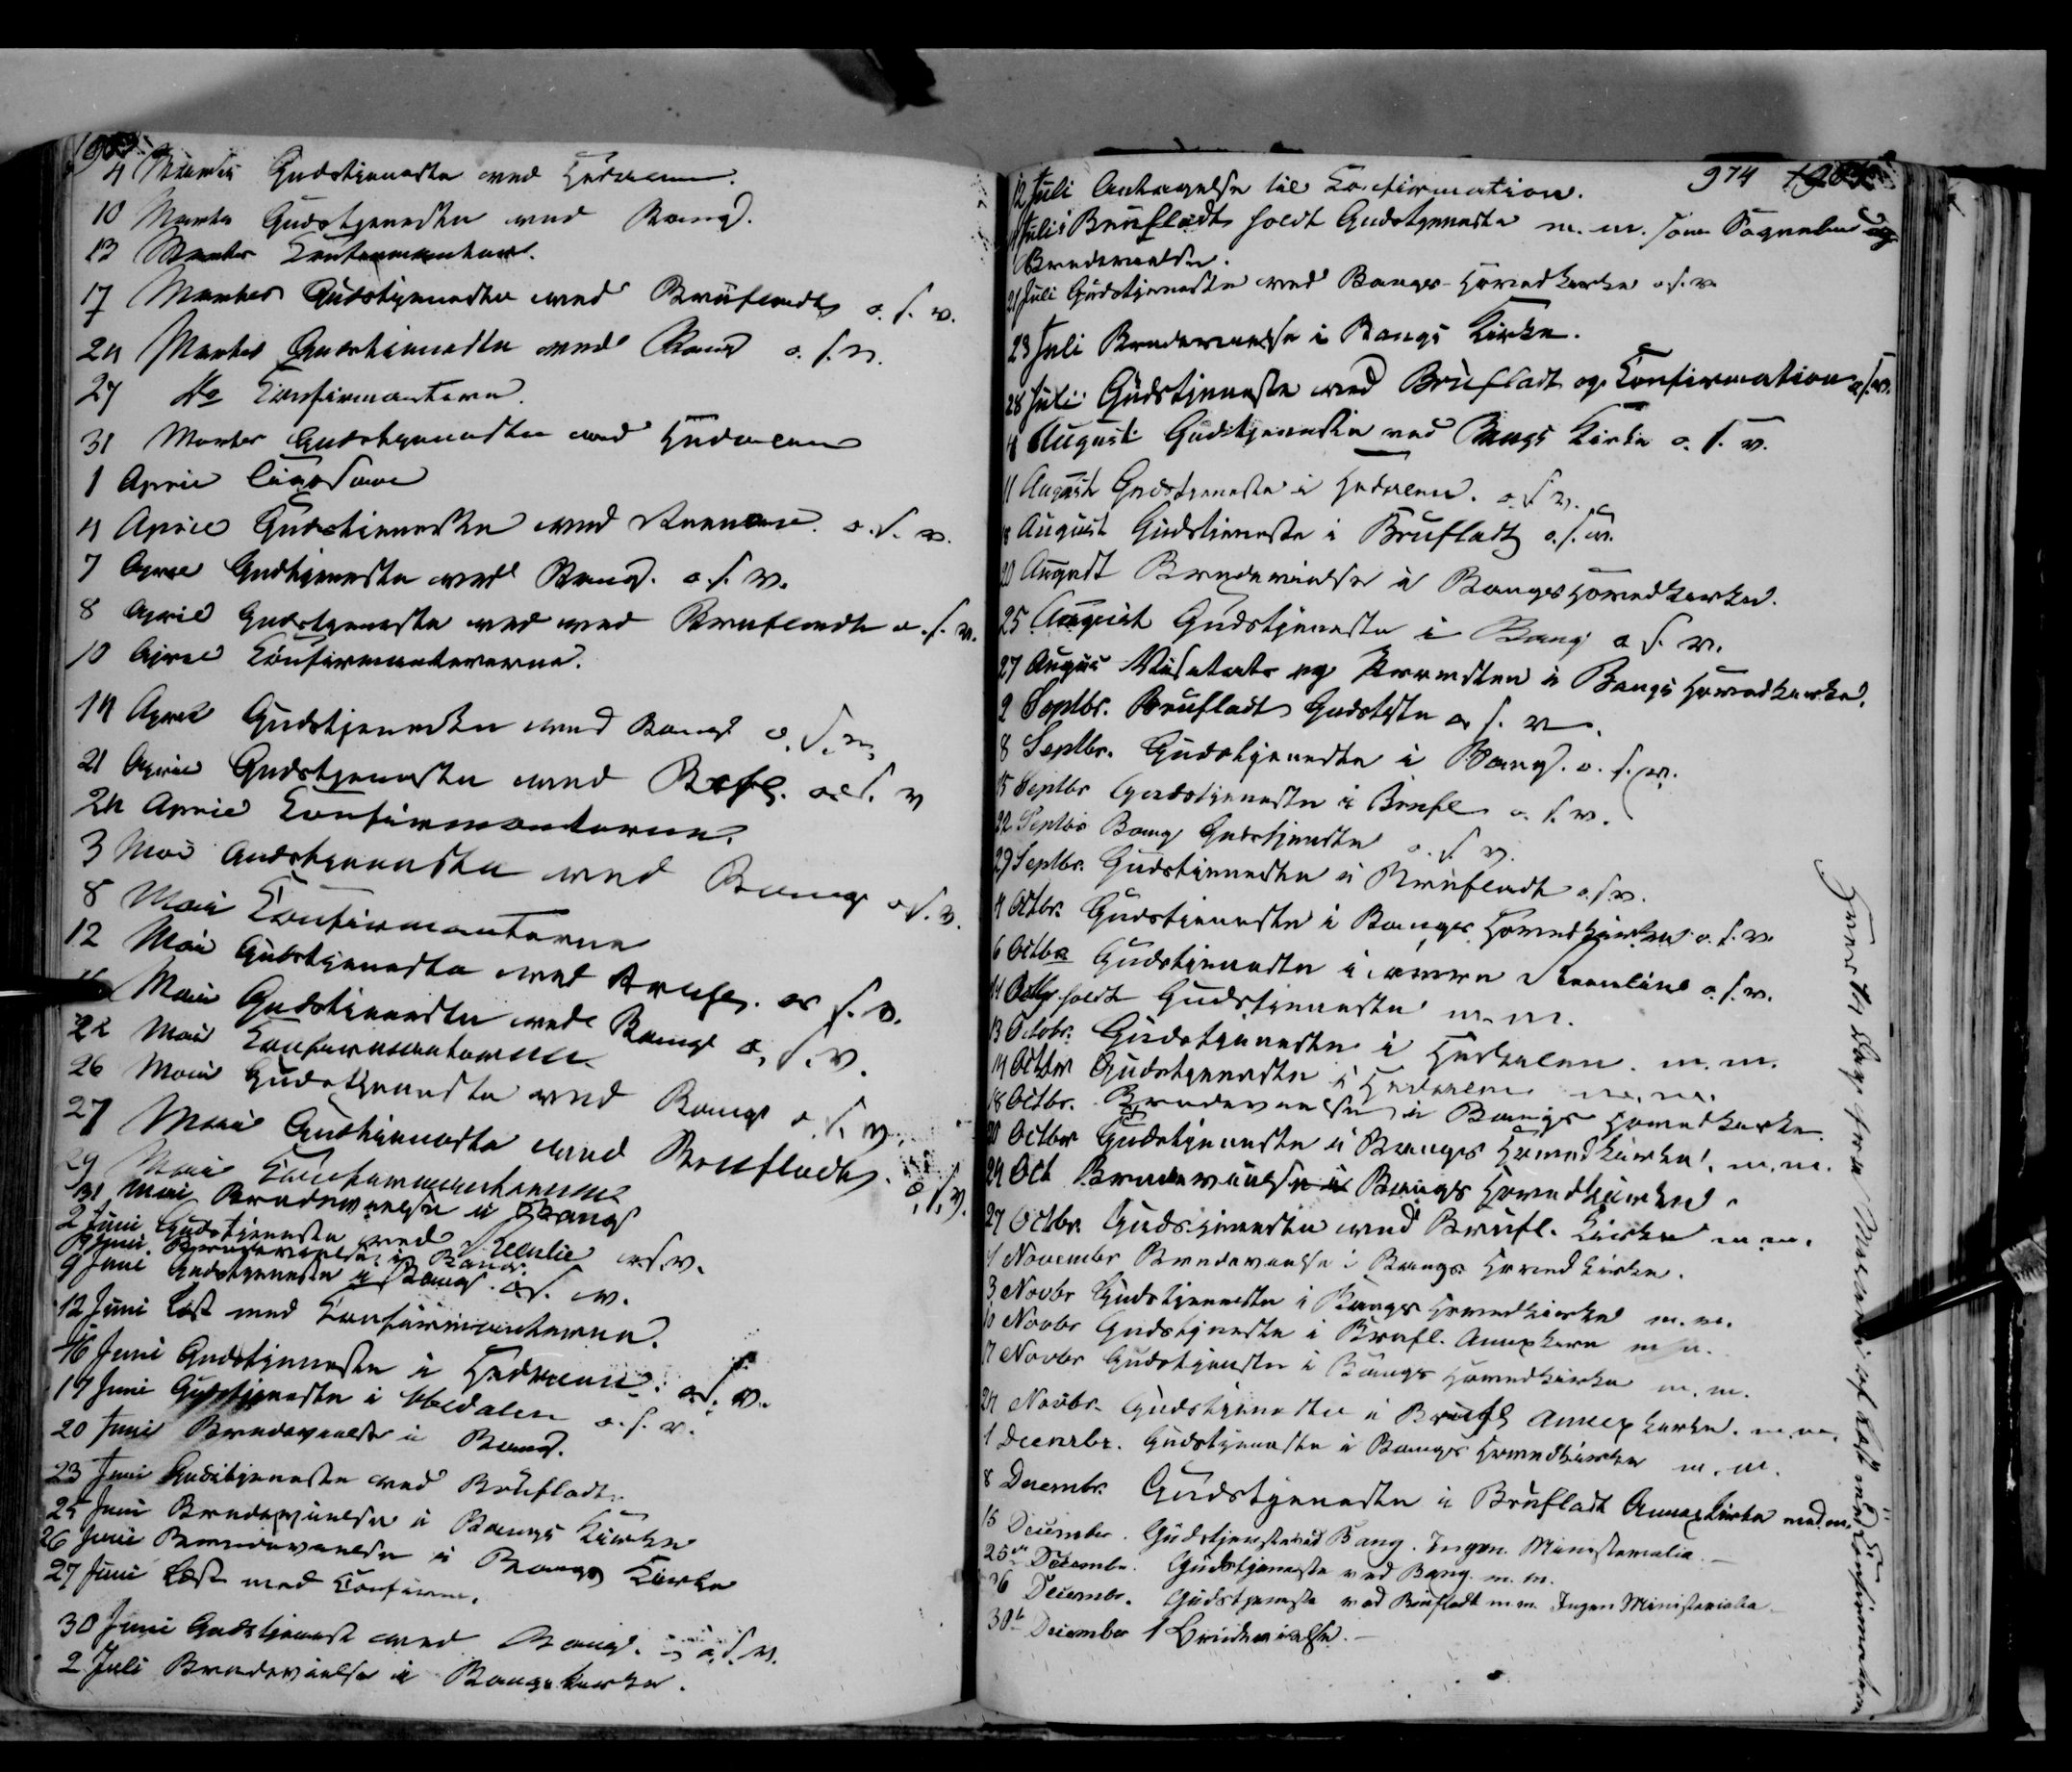 4 Martz Gudstjeneste ved Hedalen.
10 Martz Gudstjeneste ved Bang.
13 Martz Confirmanterne.
17 Martz Gudstjeneste ved Brufladt o. s. v.
24 Martz Gudstjeneste ved Bang o. s. v.
27 do Confirmanterne.
31 Martz Gudstjeneste ved Hedalen
1 April
4 April Gudstjeneste ved o. s. v.
7 April Gudtjeneste ved Bang. o. s. v.
8 April Gudstjeneste ved ved Brufladt o. s. v.
10 April Confirmanterne.
14 April Gudstjeneste ved Bang o. s. v.
21 April Gudstjeneste ved Brfl. o. s. v
24 April Confirmanterne.
3 Mai Gudstjeneste ved Bang o. s. v.
8 Mai Confirmanterne
12 Mai Gudstjeneste ved Brufl. o. s. v.
Mai Gudstjeneste ved Bang o. s. v.
22 Mai Confirmanterne
26 Mai Gudstjeneste ved Bang o. s. v.
27 Mai Gudstjeneste ved Brufladt. o. s. v.
29 Mai Confirmanterne
31 Mai Brudevielse i Bang
2 Juni Gudstjeneste ved o. s. v.
Juni Brudevielse i Bang
9 Juni Gudstjeneste i Bang o. s. v.
12 Juni Læst med Confirmanterne.
16 Juni Gudstjeneste i Hedalen. o. s. v.
17 Juni Gudstjeneste i Hedalen o. s. v.
20 Juni Brudevielse i Bang.
23 Juni Gudstjeneste ved Brufladt.
25 Juni Brudevielse i Bangs Kirke
26 Juni Brudevielse i Bangs Kirke
27 Juni Læst med Confirm.
30 Juni Gudstjenest ved Bang. o. s. v.
2 Juli Brudevielse i Bangs kirke.
974
12 Juli Antagelse til Confirmation.
Juli Brufladt holdt Gudstjeneste m. m. samt
Brudevielse.
21 Juli Gudstjeneste ved Bangs Hovedkirke o. s. v.
23 Juli Brudevielse i Bangs Kirke.
28 Juli Gudstjeneste ved Brufladt og Confirmation o. s. v.
4 August Gudstjeneste ved Bangs Kirke o. s. v.
11 August Gudstjeneste i Hedalen. o. s. v.
18 August Gudstjeneste i Brufladt o. s. v.
20 August Brudevielse i Bangs Hovedkirke.
25 August Gudstjeneste i Bang o. s. v.
27 August Visitats og i Bangs Hovedkirke.
2 Septbr. Brufladt Gudstjste o. s. v.
8 Septbr. Gudstjeneste i Bang. o. s. v.
15 Septbr Gudstjeneste i Brufl o. s. v.
22 Septbr Bang Gudstjeneste o. s. v.
29 Septbr. Gudstjeneste i Brufladt o. s. v.
4 Octbr. Gudstjeneste i Bangs Hovedkirke o. s. v.
6 Octbr Gudstjeneste i o. s. v.
11 Octbr holdt Gudstjeneste m. m.
13 Octobr. Gudstjeneste i Hedalen. m. m.
14 Octbr Gudstjeneste i Hedalen m. m.
18 Octbr. Brudevielse i Bangs Hovedkirke.
20 Octbr Gudstjeneste i Bangs Hovedkirke. m. m.
24 Oct Brudevielse i Bangs Hovedkirke.
27 Octbr. Gudstjeneste ved Brufl. Kirke m. m.
1 Novembr Brudevielse i Bangs Hovedkirke.
3 Novbr Gudstjeneste i Bangs Hovedkirke m. m.
10 Novbr Gudstjeneste i Brufl. Annexkirke m. m.
17 Novbr Gudstjeneste i Bangs Hovedkirke m. m.
24 Novbr. Gudstjeneste i Brufl Annexkirke. m. m.
1 Decembr. Gudstjeneste i Bangs Hovedkirke m. m.
8 Decembr. Gudstjeneste i Brufladt Annexkirke med m.
15 December. Gudstjeneste ved Bang. Ingen Ministerialia.
25de Decembr. Gudstjeneste ved Bang. m. m.
26 Decembr. Gudstjeneste ved Brufladt m. m. Ingen Ministerialia
30te December 1 Brudevielse.
læst med Confirmanterne